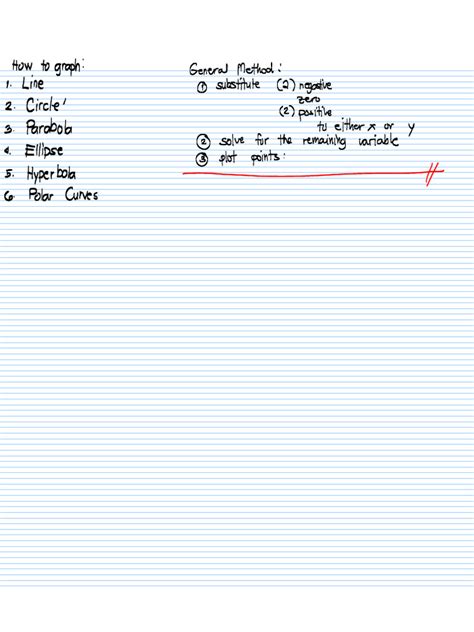 How to graph:
1. Line
2. Circle
3. Parabola
4. Ellipse
5. Hyperbola
6. Polar Curves
General Method:
① substitute (2) negative
zero
(2) positive
to either x or y
② solve for the remaining variable
③ plot points: